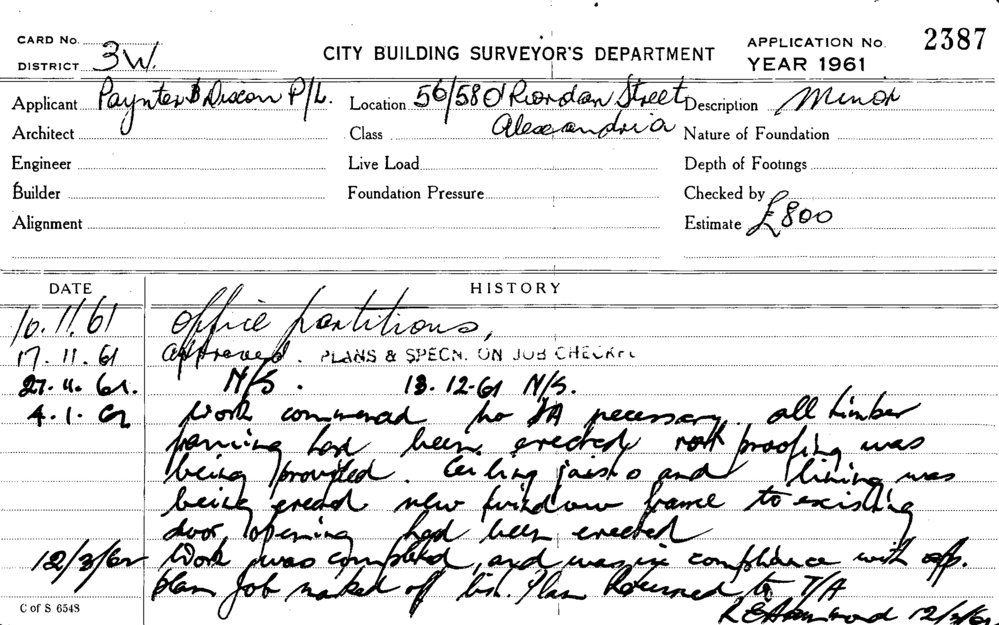 CARD No.
DISTRICT 3W.
CITY BUILDING SURVEYOR'S DEPARTMENT
APPLICATION No. 2387
YEAR 1961
Applicant Paynter & Dixon P/L. Location 56/58 O'Riordan Street Description Minor
Architect Class Alexandria Nature of Foundation
Engineer Live Load Depth of Footings
Builder Foundation Pressure Checked by
Alignment Estimate £800
DATE HISTORY
10.11.61 Office partitions,
17.11.61 Approved. PLANS & SPECN. ON JOB CHECKED
27.11.61. N/S. 13.12.61 N/S.
4.1.62 Work commenced no necessary all timber
framing had been erected proofing was
being provided. Ceiling joists and lining was
being erected new window frame to existing
door opening had been erected
12/3/62 Work was completed, and was in compliance with app.
plan Job marked off list. Plan Returned to T/A
12/3/62
C of S 6548